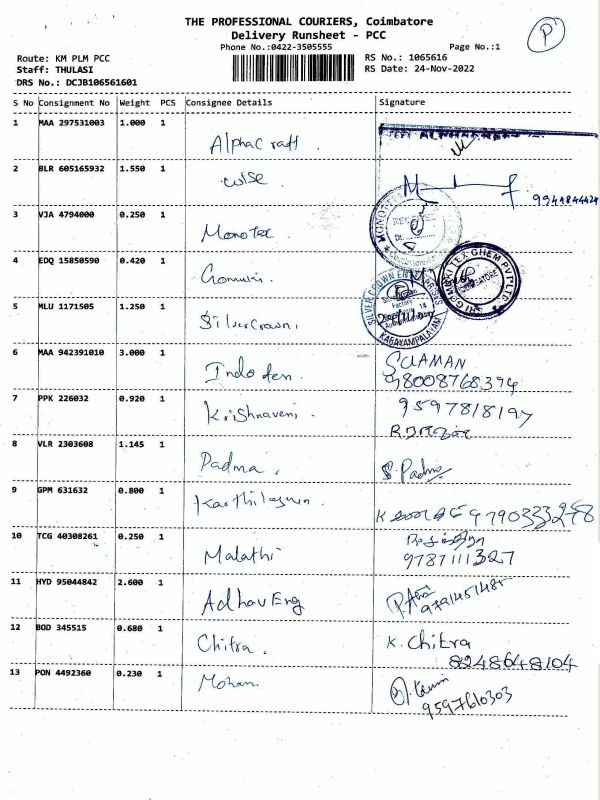 THE PROFESSIONAL COURIERS, Coimbatore
Delivery Runsheet - PCC
P
Phone No.:0422-3505555
Page No.:1
Route: KM PLM PCC
RS No.: 1065616
Staff: THULASI
RS Date: 24-Nov-2022
DRS No.: DCJB106561601
S No Consignment No Weight PCS Consignee Details Signature
1 MAA 297531003 1.000 1
AlphaCraft .
2 BLR 605165932 1.550 1
wise .
3 VJA 4794000 0.250 1
Monotex
4 EDQ 15850590 0.420 1
5 MLU 1171505 1.250 1
SilverCrown.
SILVER CROWN ENTERPRISES
Factory
KAGAYAMPALAYAM
TEX CHEM PVT LTD
6 MAA 942391010 3.000 1
7 PPK 226032 0.920 1
Krishnaveni .
9597818197
8 VLR 2303608 1.145 1
Padma .
S. Padma
9 GPM 631632 0.800 1
9790333278
10 TCG 40308261 0.250 1
Malathi
9787111327
11 HYD 95044842 2.600 1
Adhav Eng
12 BOD 345515 0.680 1
Chitra .
K. Chitra
8248648104
13 PON 4492360 0.230 1
Mohan
9597610303